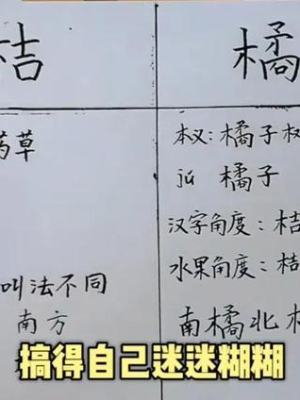 桔
橘
药草
本义:橘子
jú 橘子
汉字角度:桔
水果角度:桔
叫法不同
南方
南橘北
搞得自己迷迷糊糊